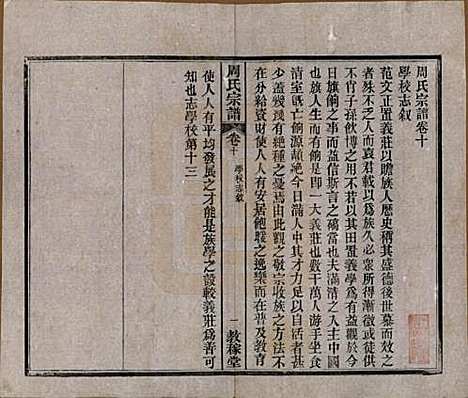 周氏宗譜卷十
學校志敘
范文正置義莊以贍族人歷史稱其盛德後世慕而效之
者殊不乏人而袁君載以爲族久必眾所得漸微或徒供
不肖子孫飲博之資不若以其田置義學爲有益觀於今
日旗薊之事而益信斯言之礭當也夫滿清之入主中國
也旗人生而有餉是即一大義莊也數千萬人游手坐食
清室旣亡餉源頓絶今日滿人中其才力足以自活者甚
少蓋幾幾有絶種之憂焉由此觀之敬宗收族之方法不
在分給資財使人人有安居飽煖之逸樂而在普及教育
周氏宗譜
卷十
學校志敘
一
教稼堂
使人人有平均發展之才能是族學之設較義莊爲善可
知也志學校第十三